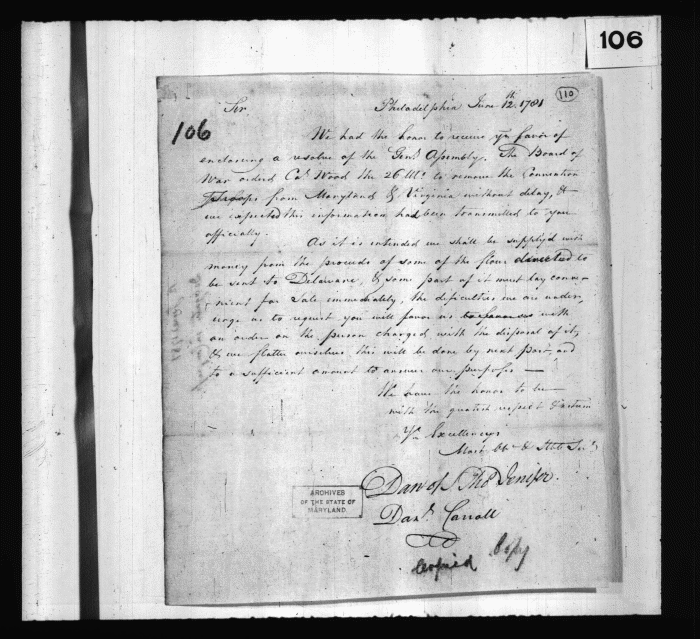 106
110
Sir
Philadelphia June 12th 1781
106
We had the honor to receive Yr. favor of
enclosing a resolve of the Genl. Assembly. The Board of
War orderd Col. Wood the 26 Ulto. to remove the Convention
Troops from Maryland & Virginia without delay, &
we expected this information had been transmitted to you
officially.
As it is intended we shall be supply'd with
money from the proceeds of some of the flour directed to
be sent to Delaware, & some part of it must lay conve-
nient for Sale immediately, the dificulties we are under,
urge us to request you will favor us with
an order on the person charged with the disposal of it,
& we flatter ourselves this will be done by next post, and
to a sufficient amount to answer our purposes —
We have the honor to be
with the greatest respect & esteem
Yr. Excellencys
Most Obt. & Hble Servts
Dan of St Thos Jenifer.
Danl. Carroll
ARCHIVES
OF THE STATE OF
MARYLAND.
Copied
Copy